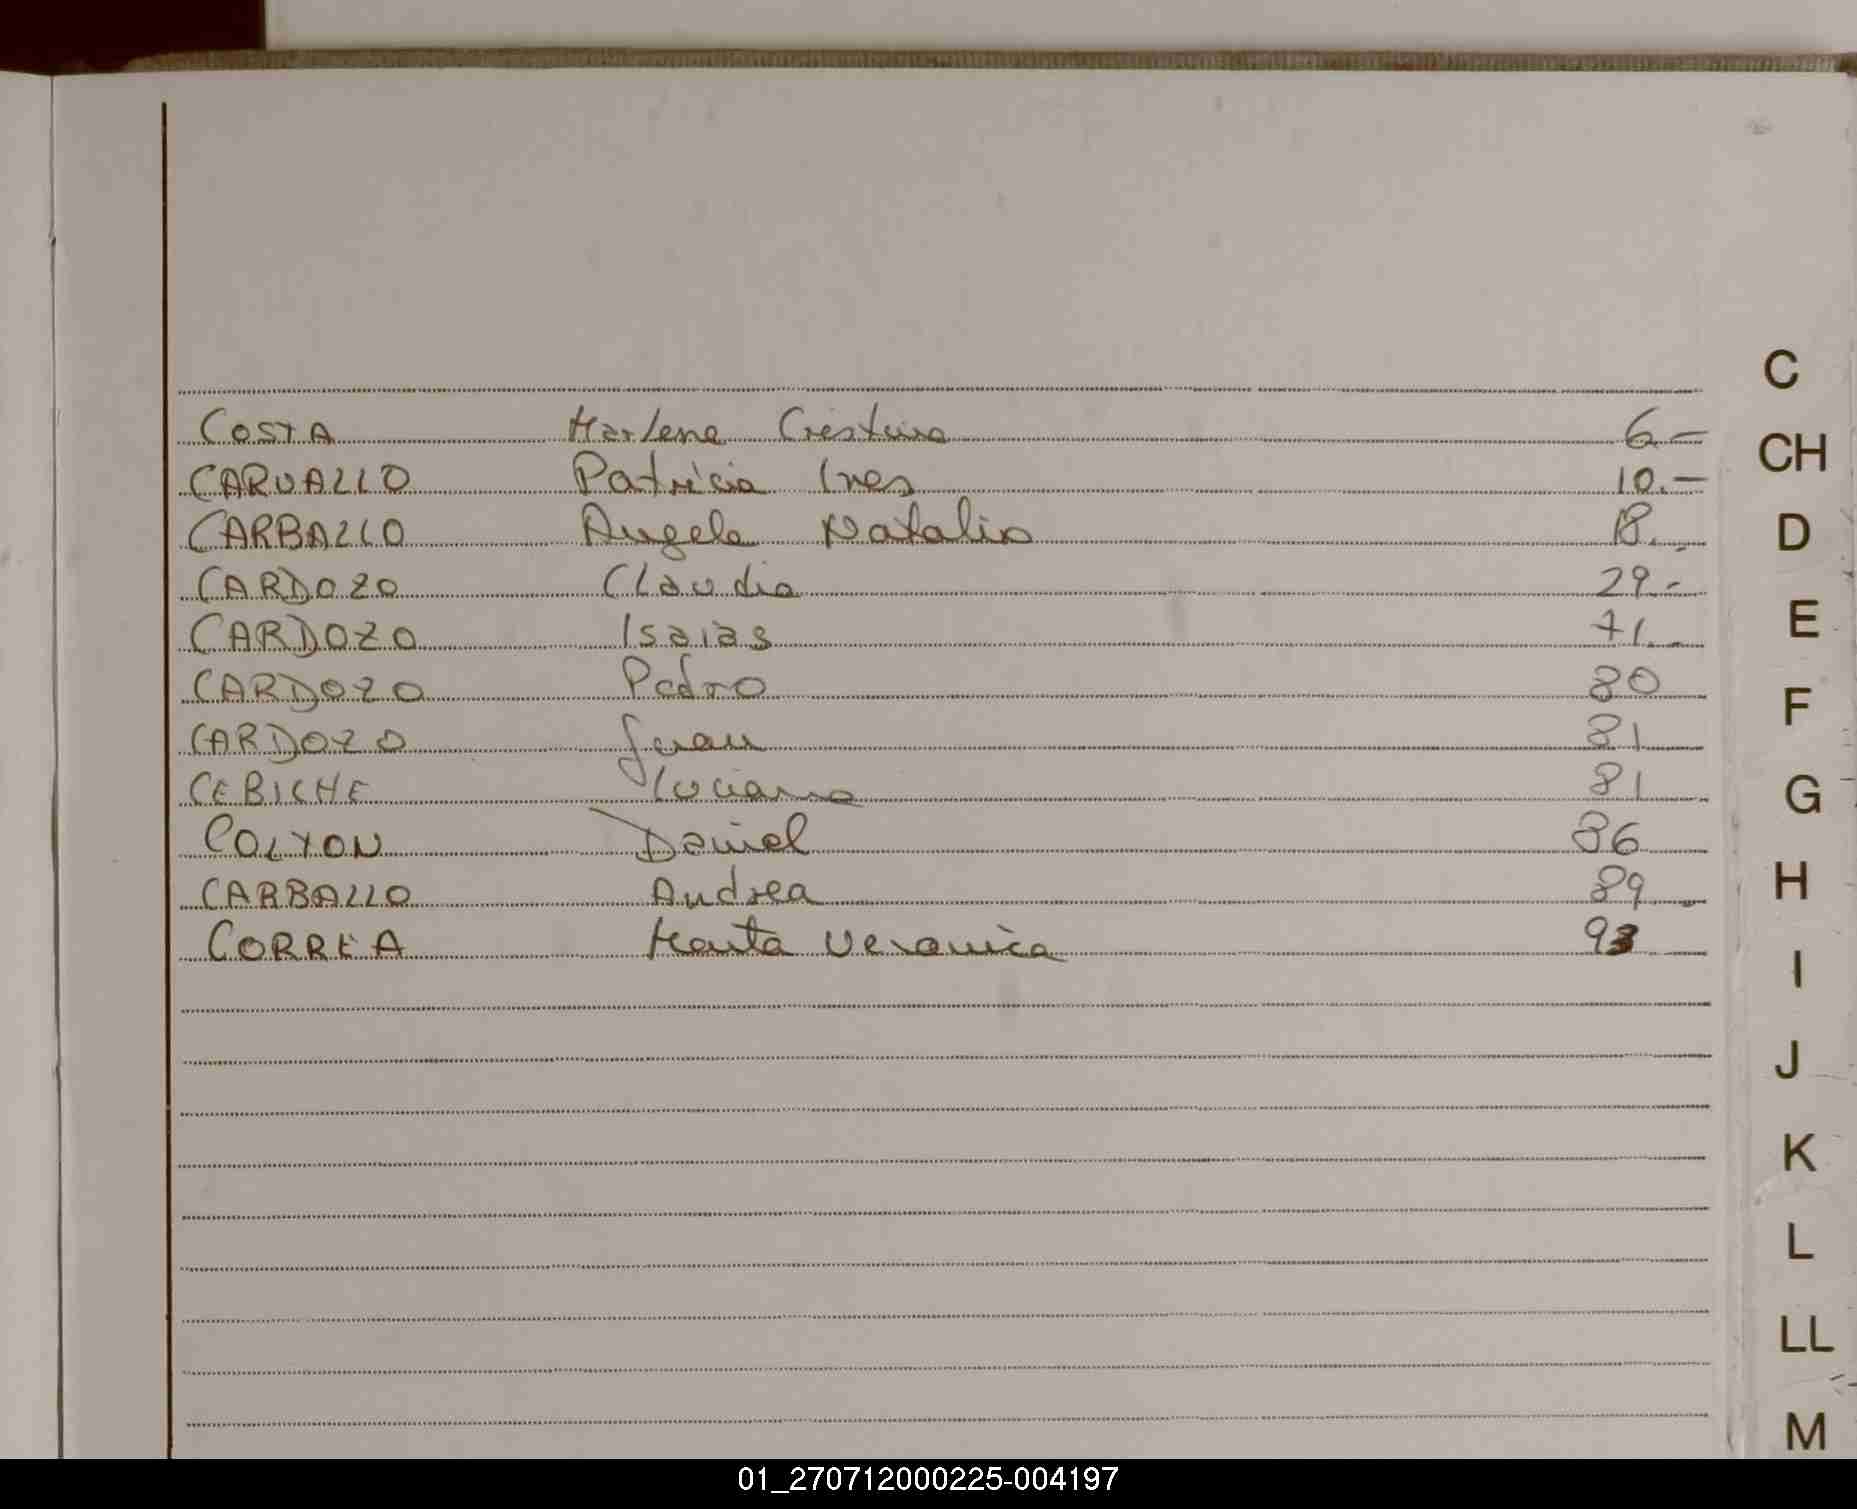 C
COSTA Marlene Cristina 6.-
CH
CARVALLO Patricia Ines 10.-
CARBALLO Angela Natalia 18.-
D
CARDOZO Claudia 29.-
E
CARDOZO Isaias 71.-
CARDOZO Pedro 80
F
CARDOZO Juan 81
CEBICHE Luciana 81
G
COLYON Daniel 86
CARBALLO Andrea 89
H
CORREA Marta Veronica 93
I
J
K
L
LL
M
01_270712000225-004197